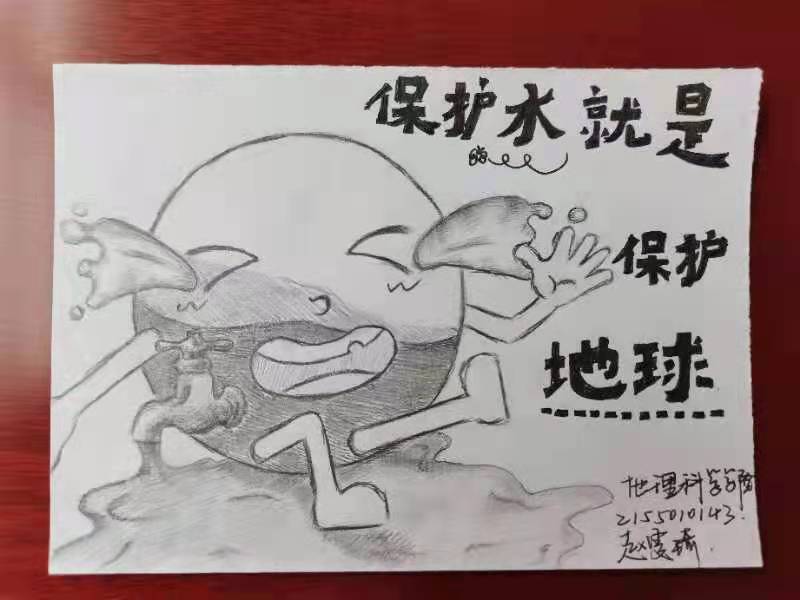 保护水就是
保护
地球
地理科学学院
2155010143.
赵雯琦.